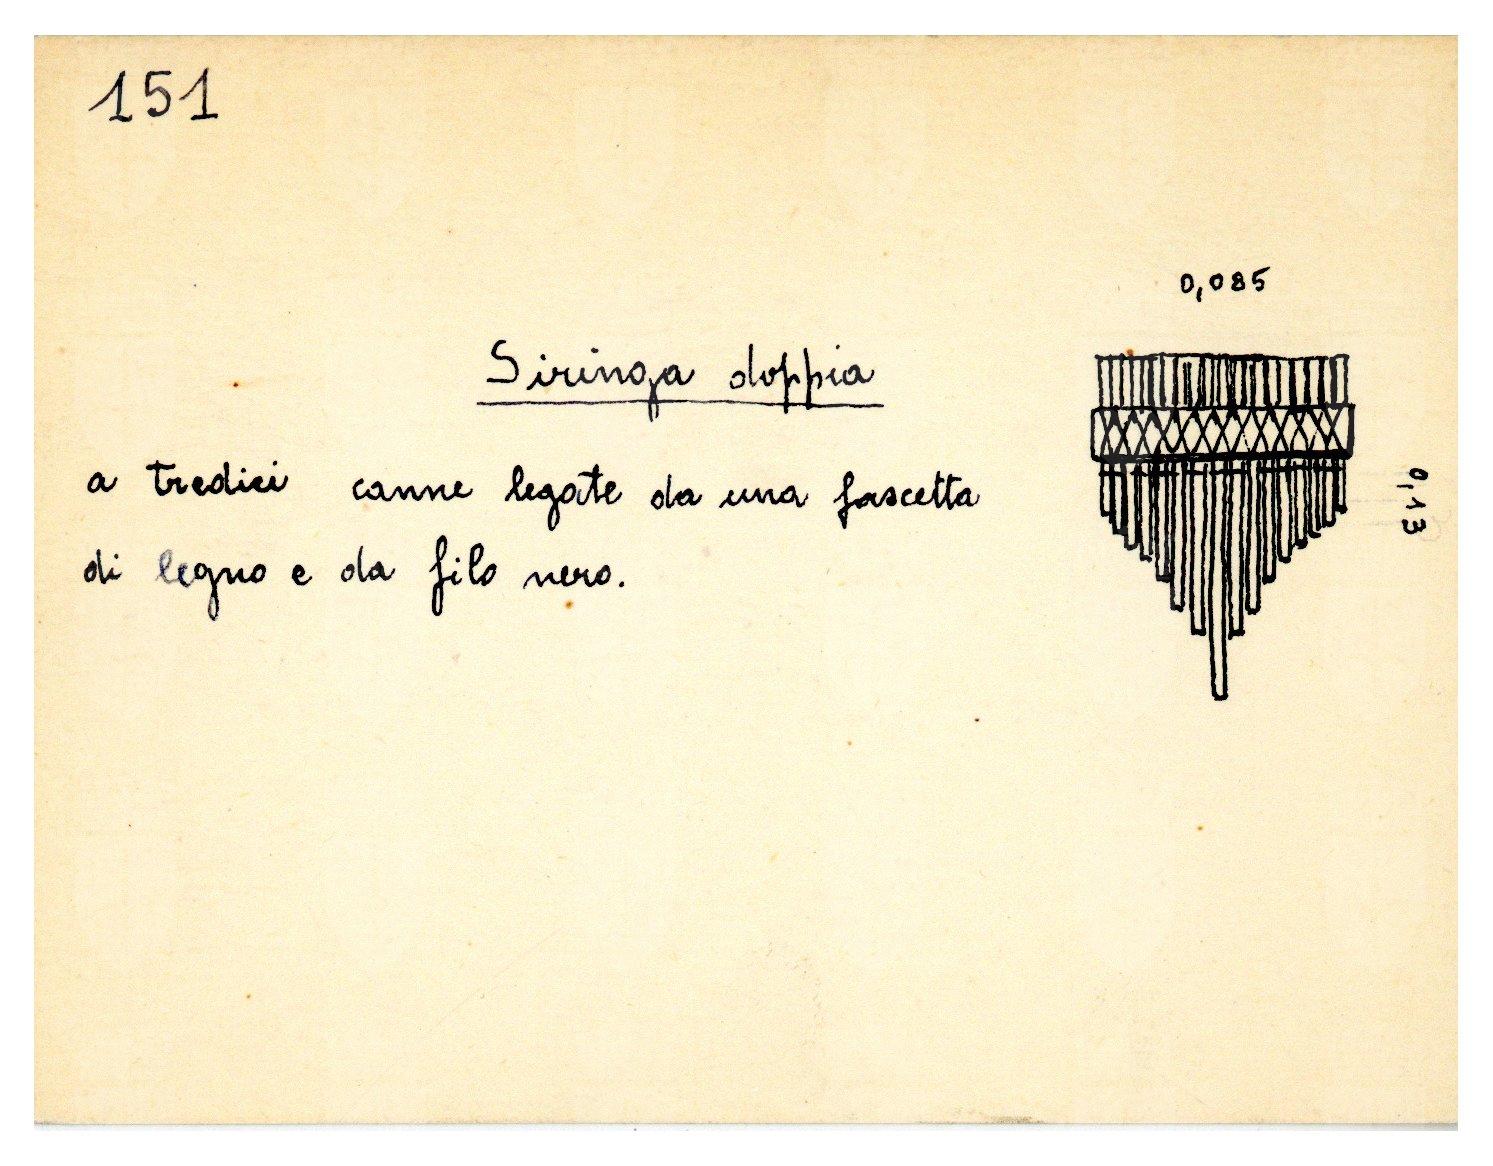 151
0,085
Siringa doppia
a tredici canne legate da una fascetta
di legno e da filo nero.
0,13